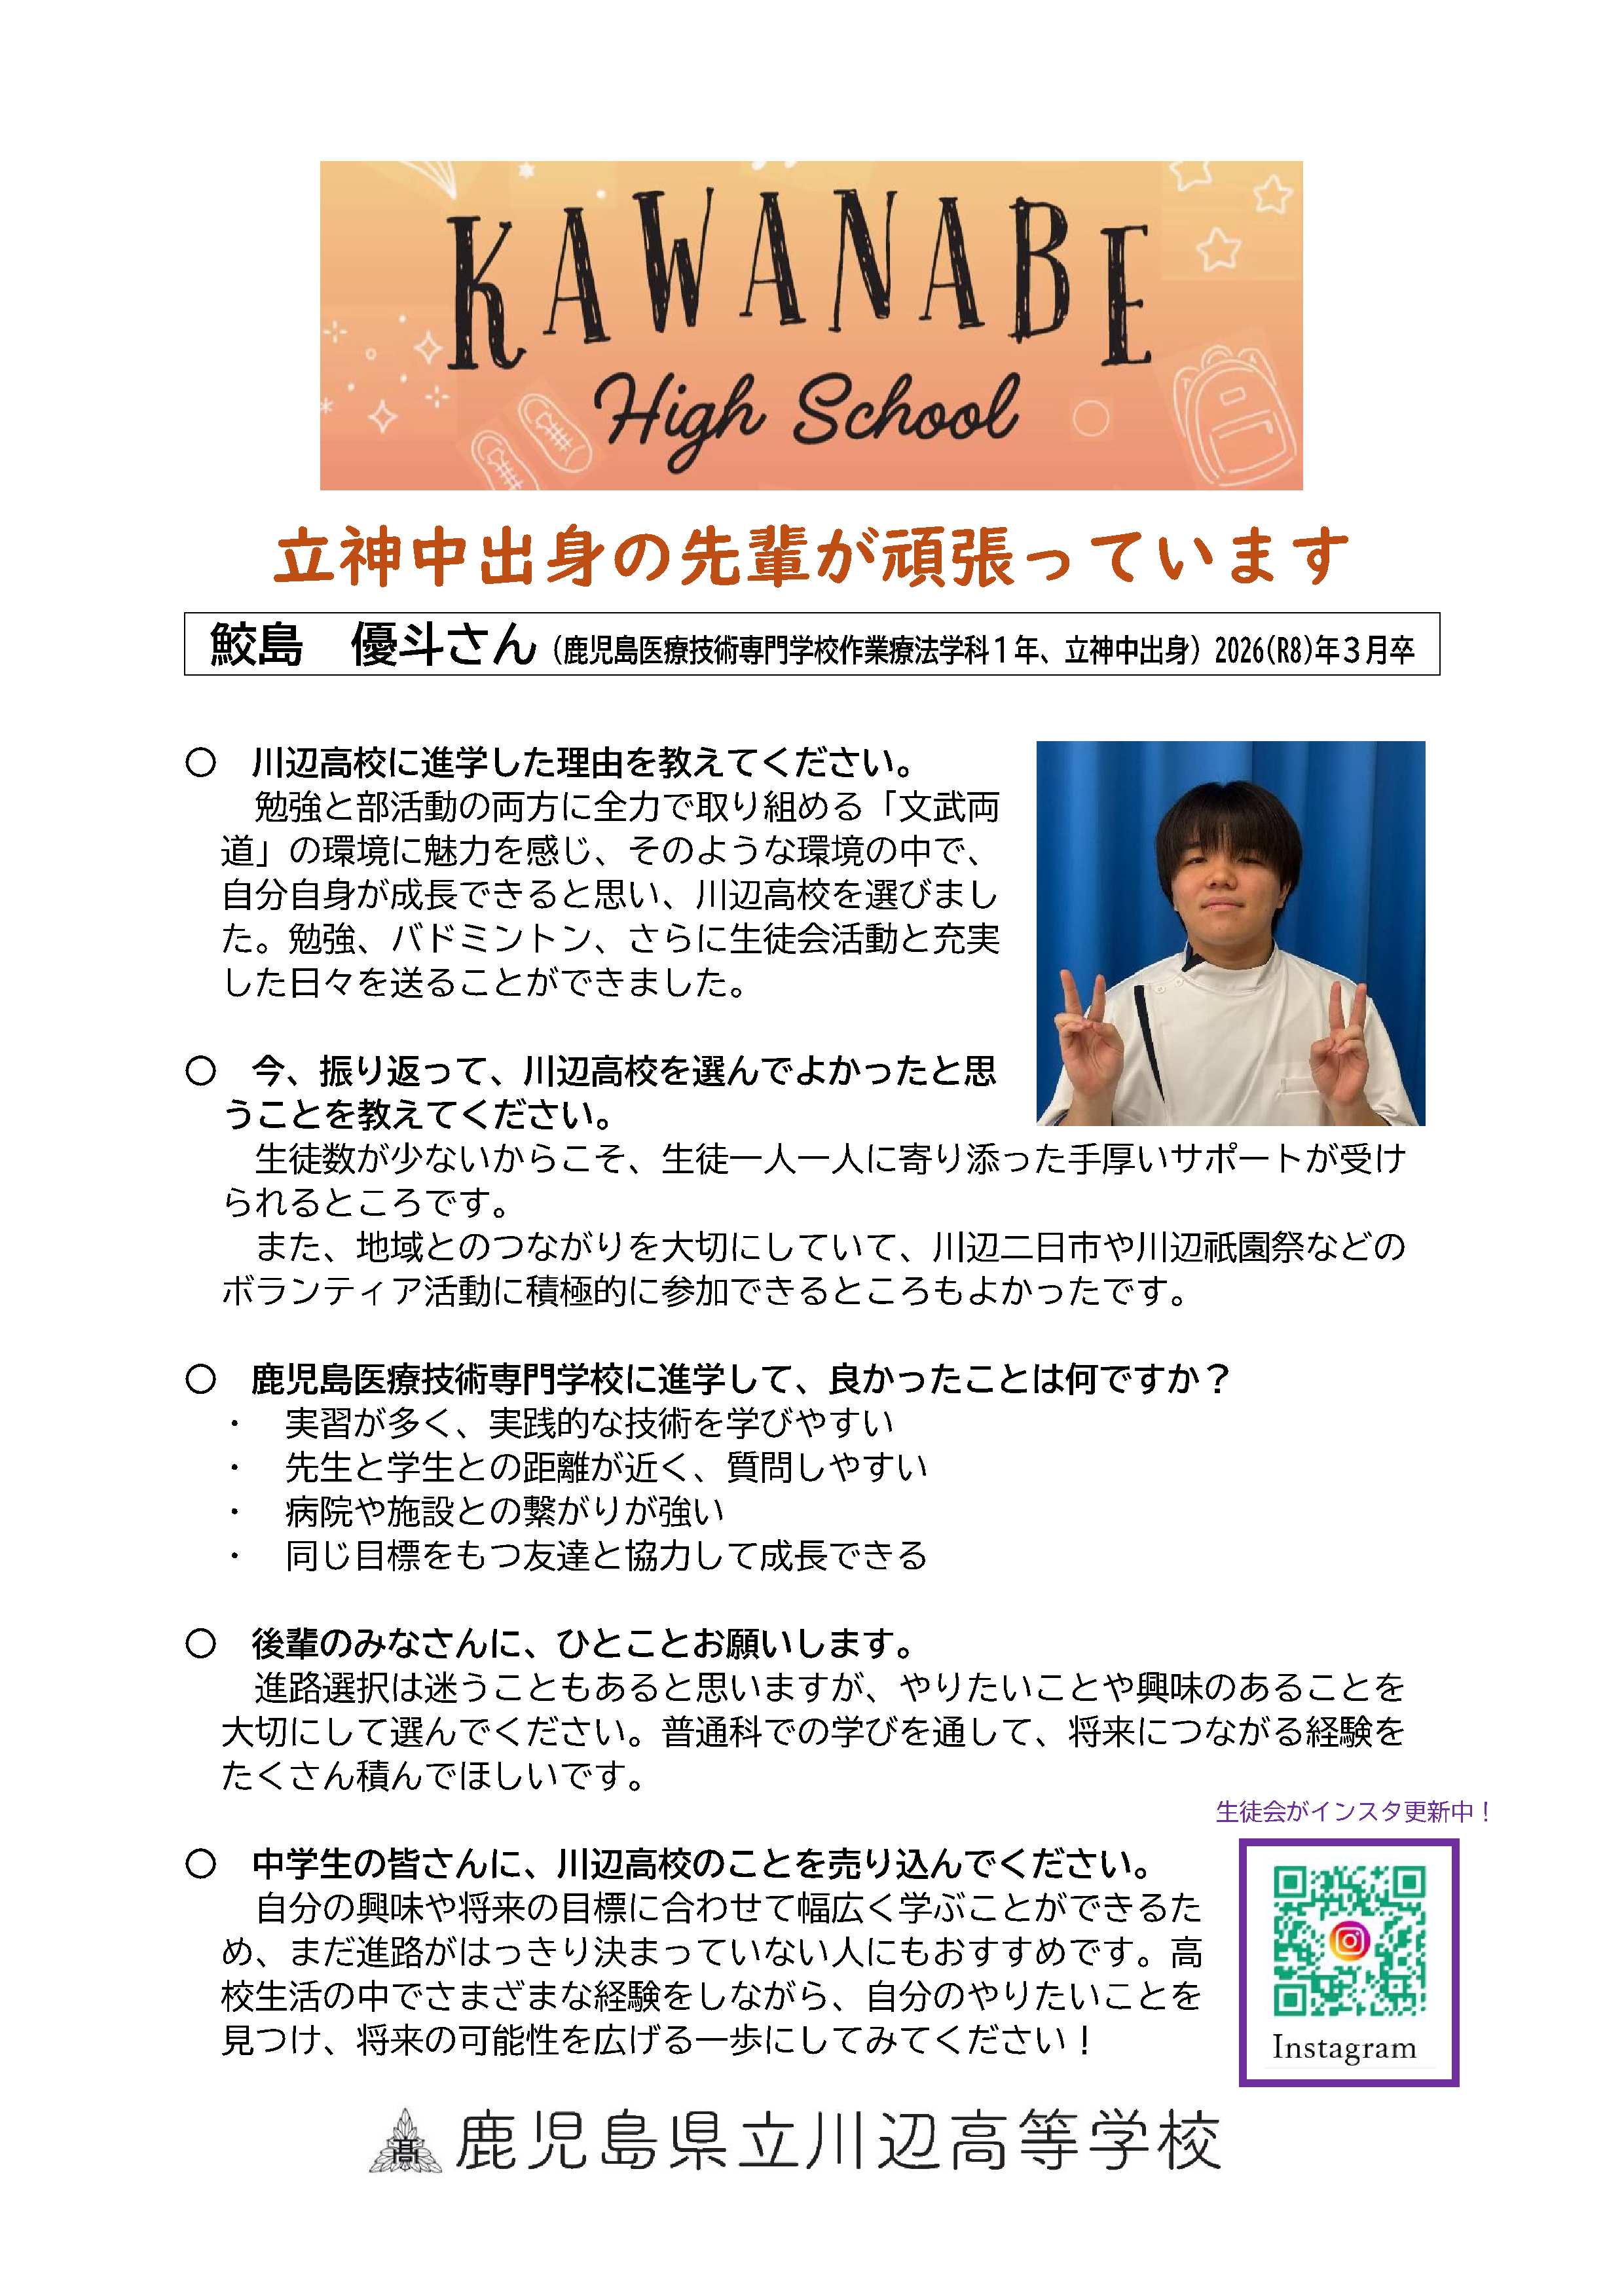 KAWANABE
High School
立神中出身の先輩が頑張っています
鮫島　優斗さん（鹿児島医療技術専門学校作業療法学科１年、立神中出身）2026(R8)年３月卒
〇　川辺高校に進学した理由を教えてください。
勉強と部活動の両方に全力で取り組める「文武両
道」の環境に魅力を感じ、そのような環境の中で、
自分自身が成長できると思い、川辺高校を選びまし
た。勉強、バドミントン、さらに生徒会活動と充実
した日々を送ることができました。
〇　今、振り返って、川辺高校を選んでよかったと思
うことを教えてください。
生徒数が少ないからこそ、生徒一人一人に寄り添った手厚いサポートが受け
られるところです。
また、地域とのつながりを大切にしていて、川辺二日市や川辺祇園祭などの
ボランティア活動に積極的に参加できるところもよかったです。
〇　鹿児島医療技術専門学校に進学して、良かったことは何ですか？
・　実習が多く、実践的な技術を学びやすい
・　先生と学生との距離が近く、質問しやすい
・　病院や施設との繋がりが強い
・　同じ目標をもつ友達と協力して成長できる
〇　後輩のみなさんに、ひとことお願いします。
進路選択は迷うこともあると思いますが、やりたいことや興味のあることを
大切にして選んでください。普通科での学びを通して、将来につながる経験を
たくさん積んでほしいです。
生徒会がインスタ更新中！
〇　中学生の皆さんに、川辺高校のことを売り込んでください。
自分の興味や将来の目標に合わせて幅広く学ぶことができるた
め、まだ進路がはっきり決まっていない人にもおすすめです。高
校生活の中でさまざまな経験をしながら、自分のやりたいことを
見つけ、将来の可能性を広げる一歩にしてみてください！
Instagram
高
鹿児島県立川辺高等学校